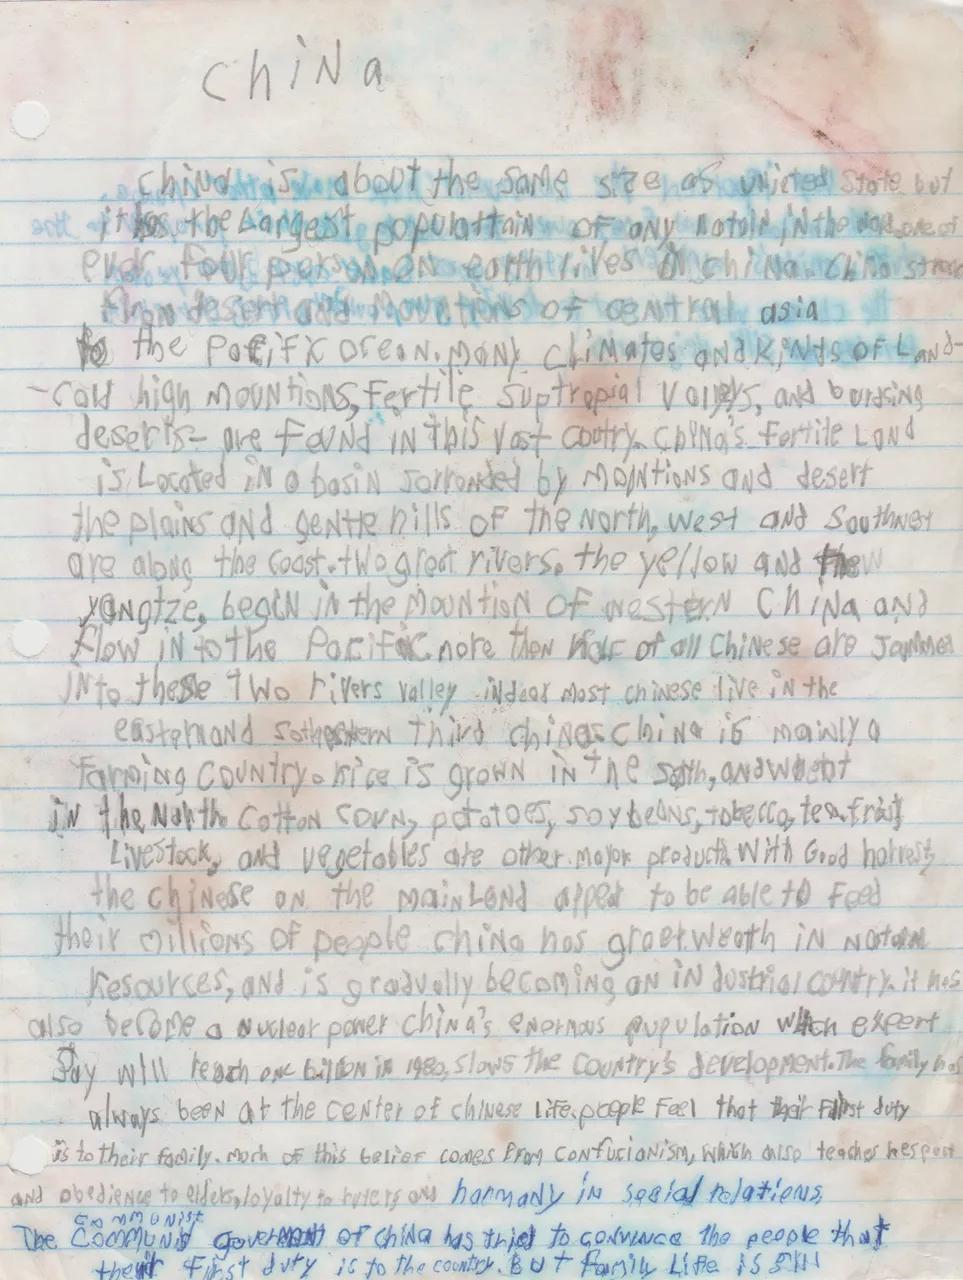 China
china is about the same size as unicted State but
it has the Largest populattain of any natoin in the one of
ever four person on earth lives in china. china strech
from desert and Mountions of central asia
to the Pacific ocean. many climates and kinds of Land-
-cold high mountions, fertile suptropial valleys, and
deserts- are found in this vast coutry. china's fertile Land
is Located in a basin sorronded by mountions and desert
the plains and gentle hills of the north, west and southwest
are along the coast. two great rivers. the yellow and the
yangtze, begin in the mountion of western China and
flow in to the Pacific more then half of all chinese are
into these two rivers valley indeed most chinese live in the
eastern and southeastern third chinas china is mainly a
farming country. rice is grown in the south, and wheat
in the North. cotton corn, potatoes, soybeans, tobecco, tea, fruit
Livestock, and vegetables are other major products. With Good harvest,
the chinese on the mainLand apper to be able to feed
their millions of people china has great weath in
resources, and is gradually becoming an industrial country. it has
also become a nuclear power china's enermous pupulation which expert
Say will reach one billion in 1980, slows the country's development. The family has
always been at the center of chinese life. people feel that their first duty
is to their family. much of this belief comes from confucionism, which also teaches respect
and obedience to elders, loyalty to rulers and harmany in social relations.
communist
The Communist goverment of china has tried to convince the people that
their first duty is to the country. But family Life is still